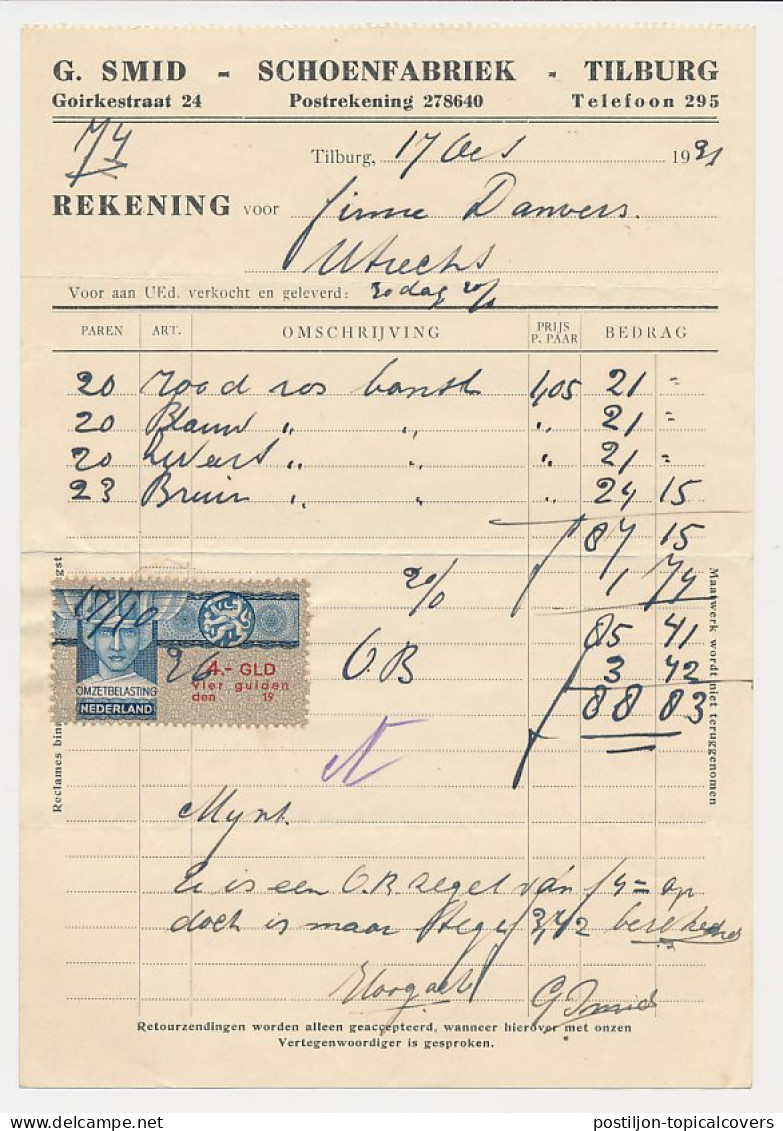 G. SMID - SCHOENFABRIEK - TILBURG
Goirkestraat 24 Postrekening 278640 Telefoon 295
74
Tilburg, 17 Oct 19
REKENING voor Firma Danvers.
Utrecht
Voor aan UEd. verkocht en geleverd: 30 dag 2%
PAREN ART. OMSCHRIJVING PRIJS P. PAAR BEDRAG
20 rood ros 1,05 21 =
20 Blauw " " " 21 =
20 Zwart " " " 21 =
23 Bruin " " " 24 15
87 15
2% 1 74
85 41
O.B 3 42
88 83
17/10
4.- GLD
Vier gulden
den 19
OMZETBELASTING
NEDERLAND
Reclames
Maatwerk wordt niet teruggenomen
Mynh.
Er is een O.B. zegel van f 4 = op
doch is maar f 3,42 berekend
Hoogach
G Smid
Retourzendingen worden alleen geaccepteerd, wanneer hierover met onzen
Vertegenwoordiger is gesproken.
postiljon-topicalcovers